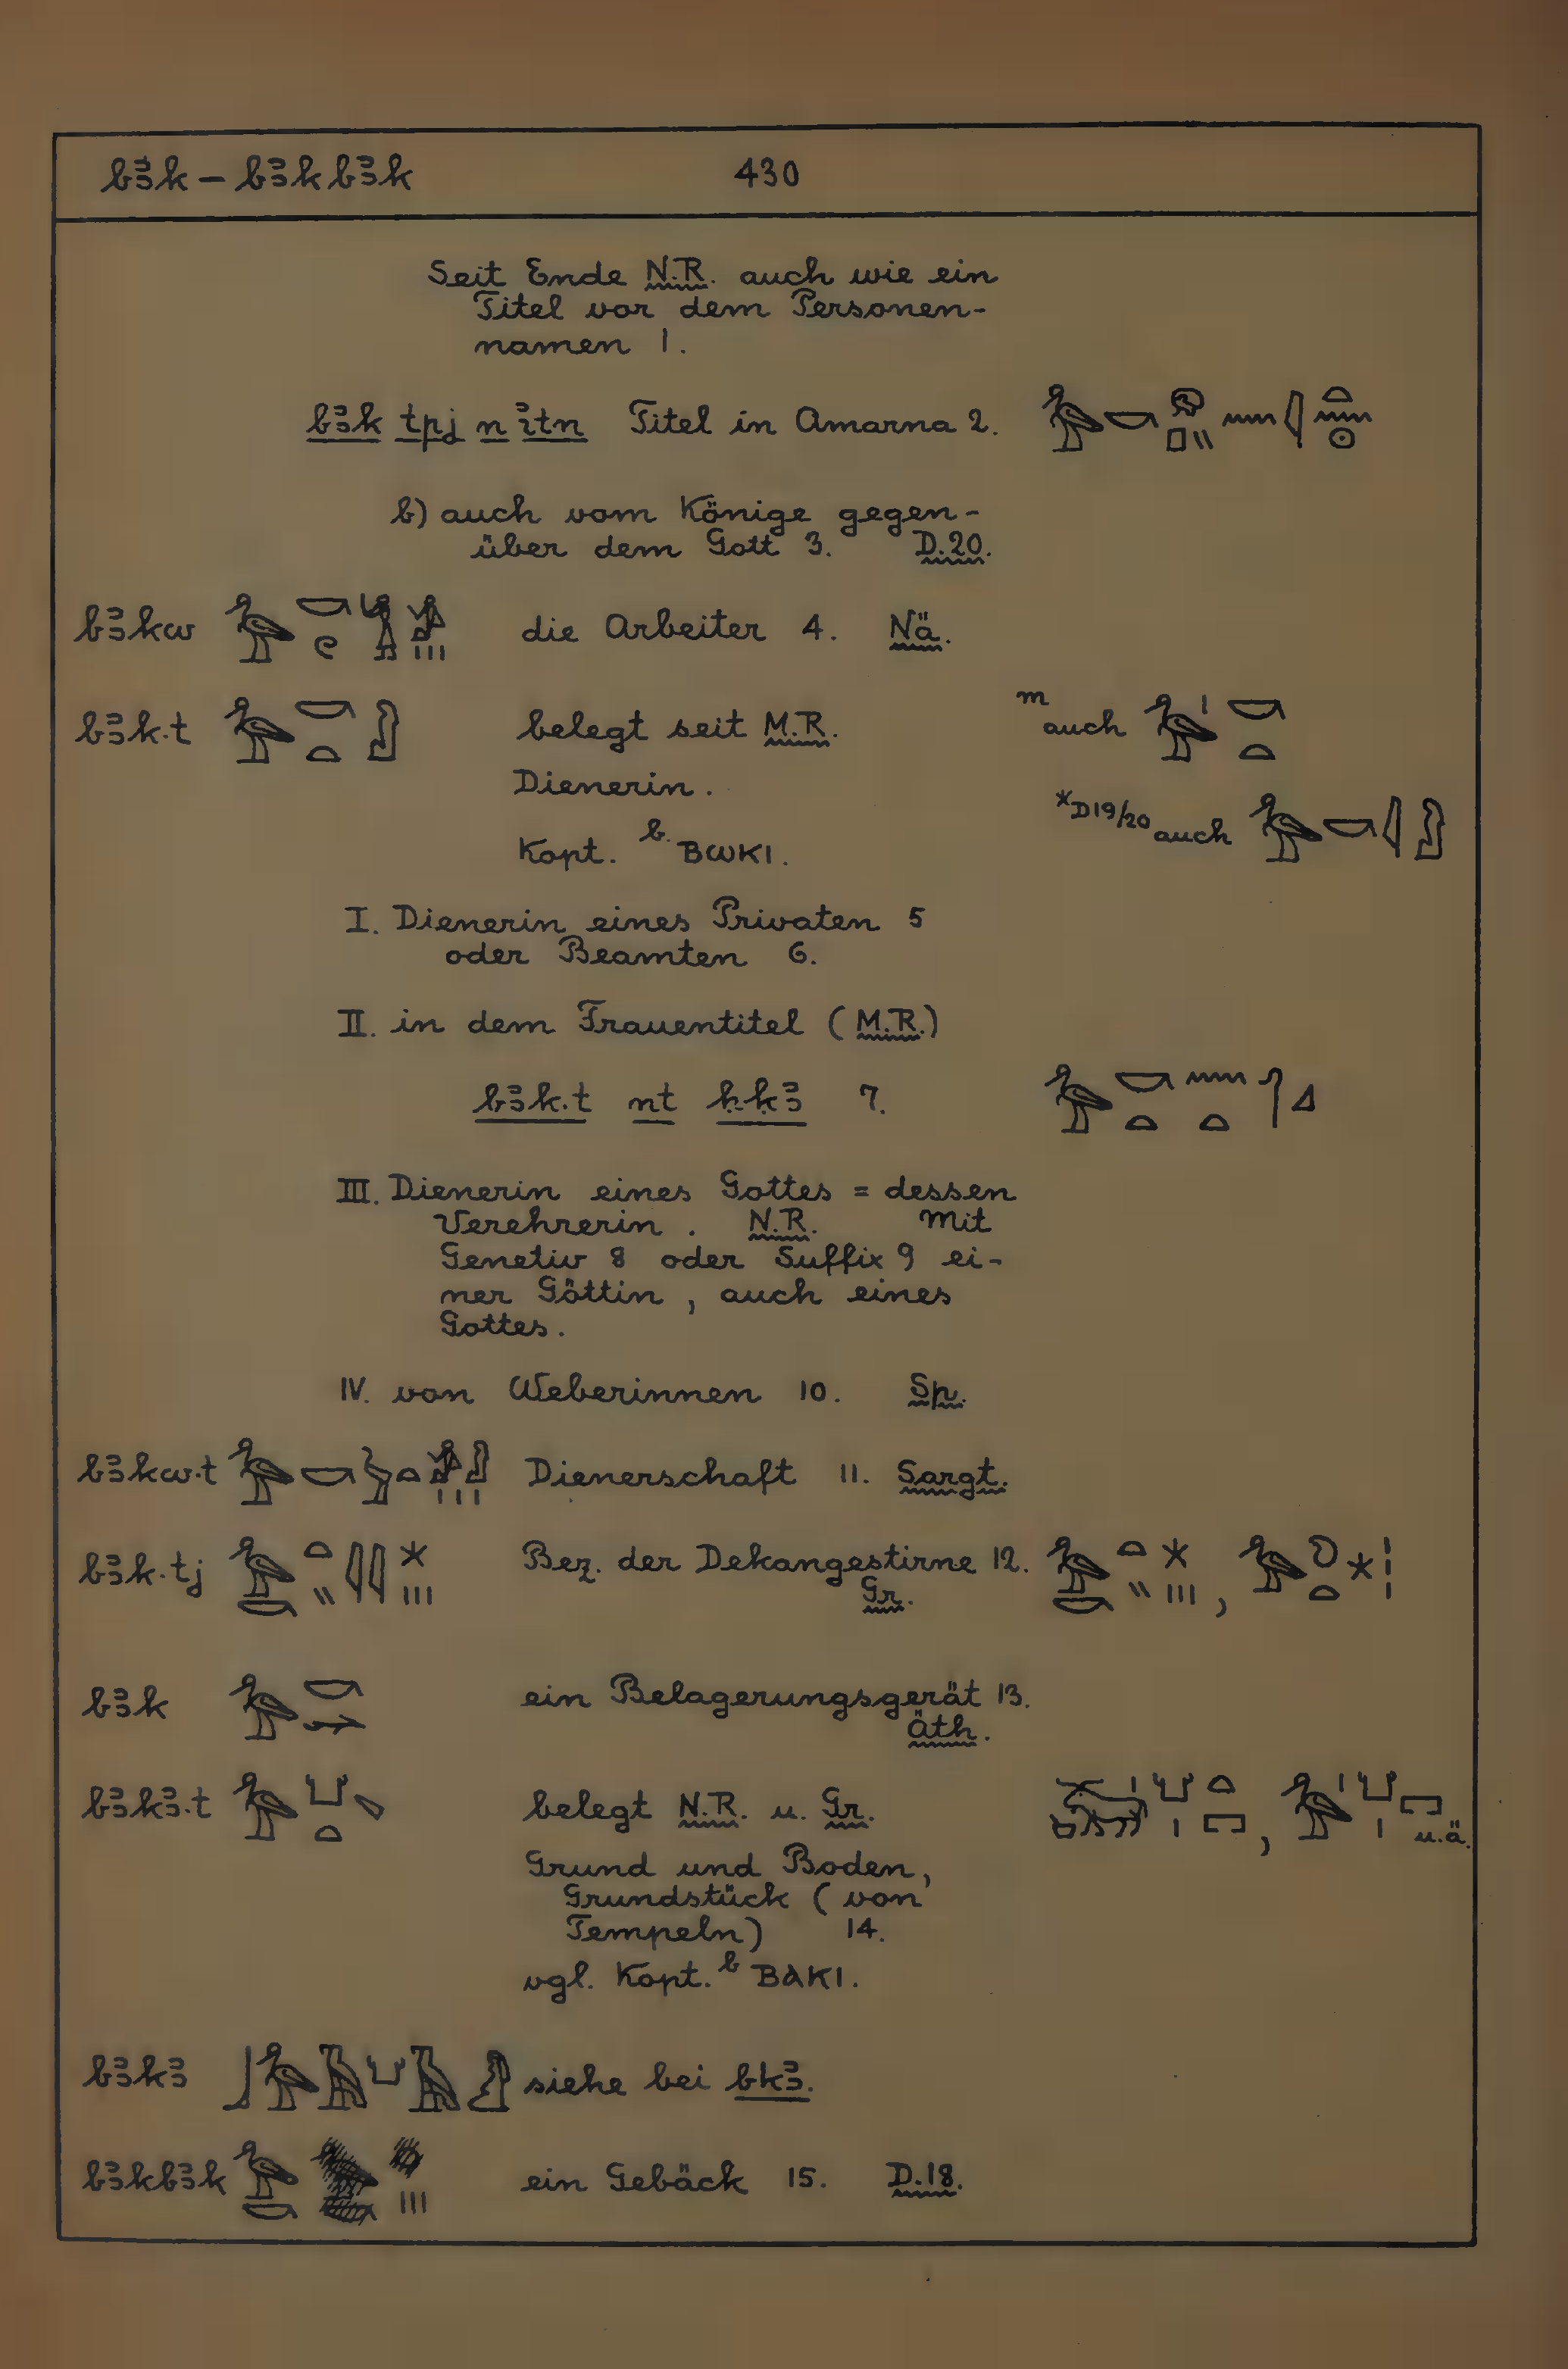 bꜣk – bꜣkbꜣk 430
Seit Ende N.R. auch wie ein
Titel vor dem Personen-
namen 1.
bꜣk tpj n ỉtn Titel in Amarna 2.
b) auch vom Könige gegen-
über dem Gott 3. D.20.
bꜣkw die Arbeiter 4. Nä.
bꜣk.t belegt seit M.R. m auch
Dienerin.
*D19/20 auch
Kopt. b. ⲂⲰⲔⲒ.
I. Dienerin eines Privaten 5
oder Beamten 6.
II. in dem Frauentitel (M.R.)
bꜣk.t nt ḥḳꜣ 7.
III. Dienerin eines Gottes = dessen
Verehrerin. N.R. Mit
Genetiv 8 oder Suffix 9 ei-
ner Göttin, auch eines
Gottes.
IV. von Weberinnen 10. Sp.
bꜣkw.t Dienerschaft 11. Sargt.
bꜣk.tj Bez. der Dekangestirne 12. ,
Gr.
bꜣk ein Belagerungsgerät 13.
Äth.
bꜣkꜣ.t belegt N.R. u. Gr. , u.ä.
Grund und Boden,
Grundstück (von
Tempeln) 14.
vgl. Kopt. b ⲂⲀⲔⲒ.
bꜣkꜣ siehe bei bkꜣ.
bꜣkbꜣk ein Gebäck 15. D.18.